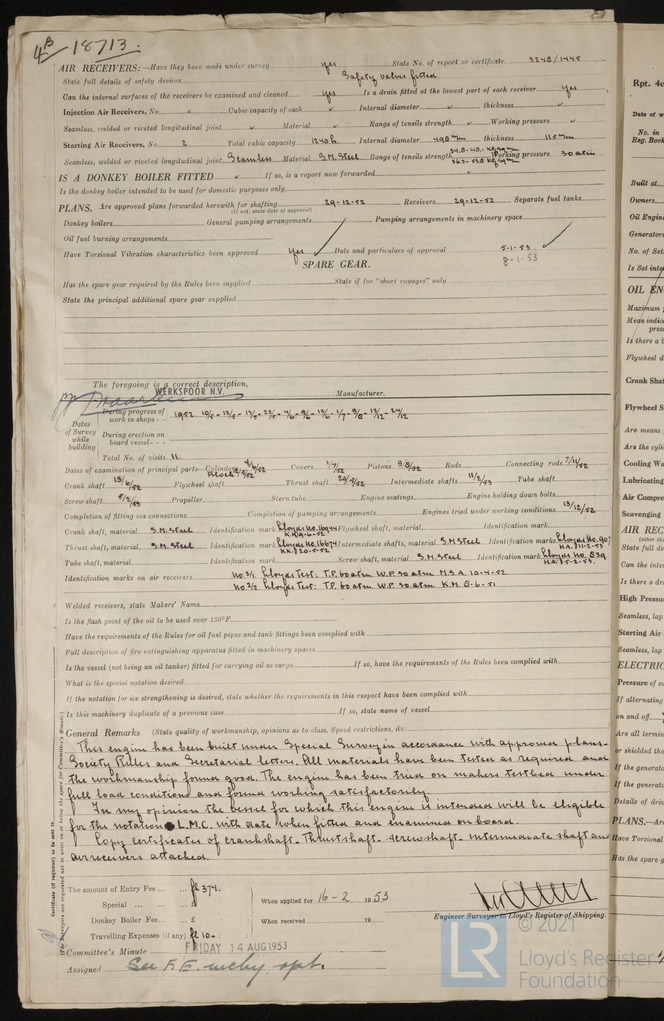 4B 18713.
AIR RECEIVERS:—Have they been made under survey yes State No. of report or certificate 3240/1445
State full details of safety devices Safety valves fitted
Can the internal surfaces of the receivers be examined and cleaned yes Is a drain fitted at the lowest part of each receiver yes
Injection Air Receivers, No. Cubic capacity of each Internal diameter thickness
Seamless, welded or riveted longitudinal joint Material Range of tensile strength Working pressure
Starting Air Receivers, No. 2 Total cubic capacity Internal diameter 490 mm thickness 11.5 mm
Seamless, welded or riveted longitudinal joint Seamless Material S.M. Steel Range of tensile strength Working pressure 30 atm
IS A DONKEY BOILER FITTED If so, is a report now forwarded
Is the donkey boiler intended to be used for domestic purposes only
PLANS. Are approved plans forwarded herewith for shafting 29-12-52 Receivers 29-12-52 Separate fuel tanks
(If not, state date of approval)
Donkey boilers General pumping arrangements Pumping arrangements in machinery space
Oil fuel burning arrangements
Have Torsional Vibration characteristics been approved yes Date and particulars of approval 5-1-53
8-1-53
SPARE GEAR.
Has the spare gear required by the Rules been supplied State if for "short voyages" only
State the principal additional spare gear supplied
The foregoing is a correct description,
WERKSPOOR N.V. Manufacturer.
Dates of Survey while building
During progress of work in shops - - 1952
During erection on board vessel - - -
Total No. of visits 11
Dates of examination of principal parts—Cylinders Covers 1/7/52 Pistons 9/8/52 Rods Connecting rods 7/11/52
Crank shaft 13/6/52 Flywheel shaft Thrust shaft Intermediate shafts 11/2/53 Tube shaft
Screw shaft 5/2/53 Propeller Stern tube Engine seatings Engine holding down bolts
Completion of fitting sea connections Completion of pumping arrangements Engines tried under working conditions 13/12/52
Crank shaft, material S.M. Steel Identification mark Lloyds No. Flywheel shaft, material Identification mark
Thrust shaft, material S.M. Steel Identification mark Lloyds No. K.K. 20-5-52 Intermediate shafts, material S.M. Steel Identification marks Lloyds No. 907 H.A. 11-2-53
Tube shaft, material Identification mark Screw shaft, material S.M. Steel Identification mark Lloyds No. 839 H.A. 5-2-53.
Identification marks on air receivers Lloyds test: T.P. 60 atm W.P. 30 atm M.S.A. 10-4-52
Lloyds test: T.P. 60 atm W.P. 30 atm K.M. 8-6-51
Welded receivers, state Makers' Name
Is the flash point of the oil to be used over 150°F.
Have the requirements of the Rules for oil fuel pipes and tank fittings been complied with
Full description of fire extinguishing apparatus fitted in machinery spaces
Is the vessel (not being an oil tanker) fitted for carrying oil as cargo If so, have the requirements of the Rules been complied with
What is the special notation desired
If the notation for ice strengthening is desired, state whether the requirements in this respect have been complied with
Is this machinery duplicate of a previous case If so, state name of vessel
General Remarks (State quality of workmanship, opinions as to class, Speed restrictions, &c.
This engine has been built under Special Survey in accordance with approved plans-
Society Rules and Secretarial letters. All materials have been tested as required and
the workmanship found good. The engine has been tried on makers testbed under
full load conditions and found working satisfactorily.
In my opinion the vessel for which this engine is intended will be eligible
for the notation L.M.C. with date when fitted and examined on board.
Copy certificates of crankshaft- Thrustshaft- screwshaft- intermediate shaft and
airreceivers attached.
The amount of Entry Fee ... fl 374.
Special ... £
Donkey Boiler Fee... £
Travelling Expenses (if any) fl 10.-
When applied for 16-2 1953
When received 19
Engineer Surveyor to Lloyd's Register of Shipping.
Committee's Minute FRIDAY 14 AUG 1953
Assigned See F.E. mchy. rpt.
Certificate (if required) to be sent to
(The Surveyors are requested not to write on or below the space for Committee's Minute.)
© 2021
LR Lloyd's Register
Foundation
Rpt. 4c
Date of w
No. in
Reg. Book
Built at
Owners
Oil Engin
Generators
No. of Set
Is Set inte
OIL EN
Maximum p
Mean indic
press
Is there a b
Flywheel d
Crank Shaf
Flywheel S
Are means
Are the cylin
Cooling Wa
Lubricating
Air Compre
Scavenging
AIR REC
(other tha
State full de
Can the inte
Is there a dr
High Pressur
Seamless, lap
Starting Air
Seamless, lap
ELECTRIC
Pressure of s
If alternating
on and off
Are all termin
or shielded tha
If the generato
If the generato
Details of driv
PLANS.—Are
Have Torsional
Has the spare g